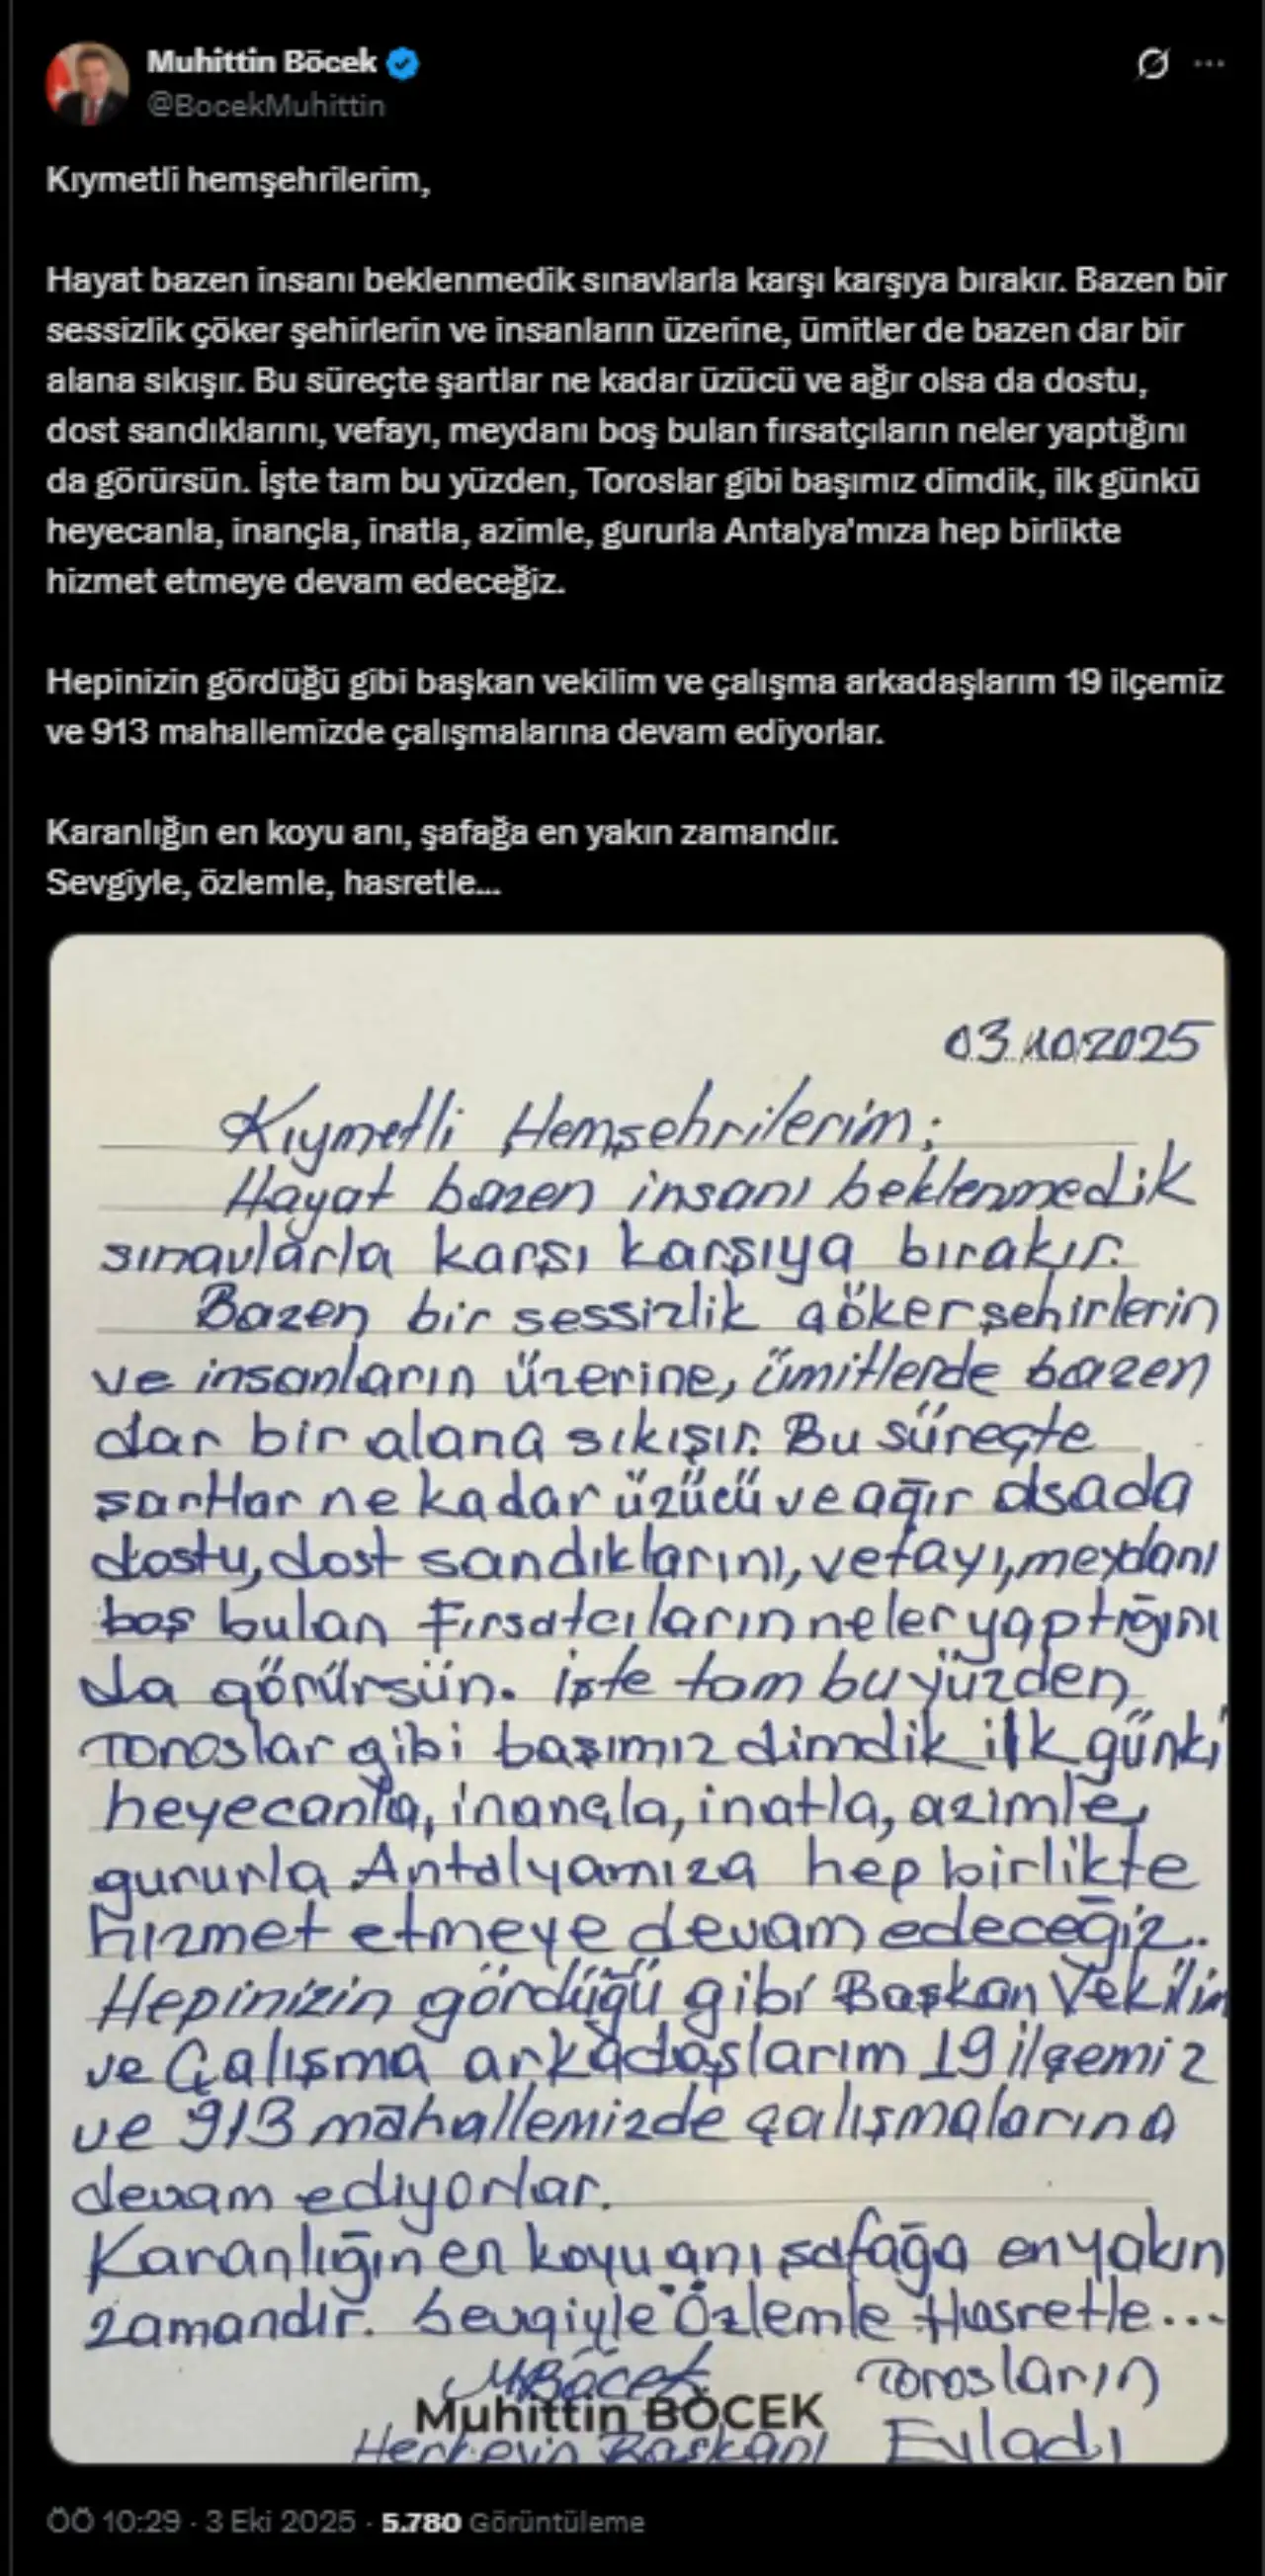 Muhittin Böcek
@BocekMuhittin
Kıymetli hemşehrilerim,
Hayat bazen insanı beklenmedik sınavlarla karşı karşıya bırakır. Bazen bir
sessizlik çöker şehirlerin ve insanların üzerine, ümitler de bazen dar bir
alana sıkışır. Bu süreçte şartlar ne kadar üzücü ve ağır olsa da dostu,
dost sandıklarını, vefayı, meydanı boş bulan fırsatçıların neler yaptığını
da görürsün. İşte tam bu yüzden, Toroslar gibi başımız dimdik, ilk günkü
heyecanla, inançla, inatla, azimle, gururla Antalya'mıza hep birlikte
hizmet etmeye devam edeceğiz.
Hepinizin gördüğü gibi başkan vekilim ve çalışma arkadaşlarım 19 ilçemiz
ve 913 mahallemizde çalışmalarına devam ediyorlar.
Karanlığın en koyu anı, şafağa en yakın zamandır.
Sevgiyle, özlemle, hasretle...
03.10.2025
Kıymetli Hemşehrilerim;
Hayat bazen insanı beklenmedik
sınavlarla karşı karşıya bırakır.
Bazen bir sessizlik çöker şehirlerin
ve insanların üzerine, ümitlerde bazen
dar bir alana sıkışır. Bu süreçte
şartlar ne kadar üzücü ve ağır olsada
dostu, dost sandıklarını, vefayı, meydanı
boş bulan Fırsatcıların neler yaptığını
da görürsün. işte tam bu yüzden
Toroslar gibi başımız dimdik ilk günki
heyecanla, inançla, inatla, azimle,
gururla Antalyamıza hep birlikte
hizmet etmeye devam edeceğiz..
Hepinizin gördüğü gibi Başkan Vekilim
ve Çalışma arkadaşlarım 19 ilçemiz
ve 913 mahallemizde çalışmalarına
devam ediyorlar.
Karanlığın en koyu anı şafağa en yakın
zamandır. Sevgiyle Özlemle Hasretle...
MBöcek Torosların
Muhittin BÖCEK
Herkesin Başkanı Evladı
ÖÖ 10:29 · 3 Eki 2025 · 5.780 Görüntüleme